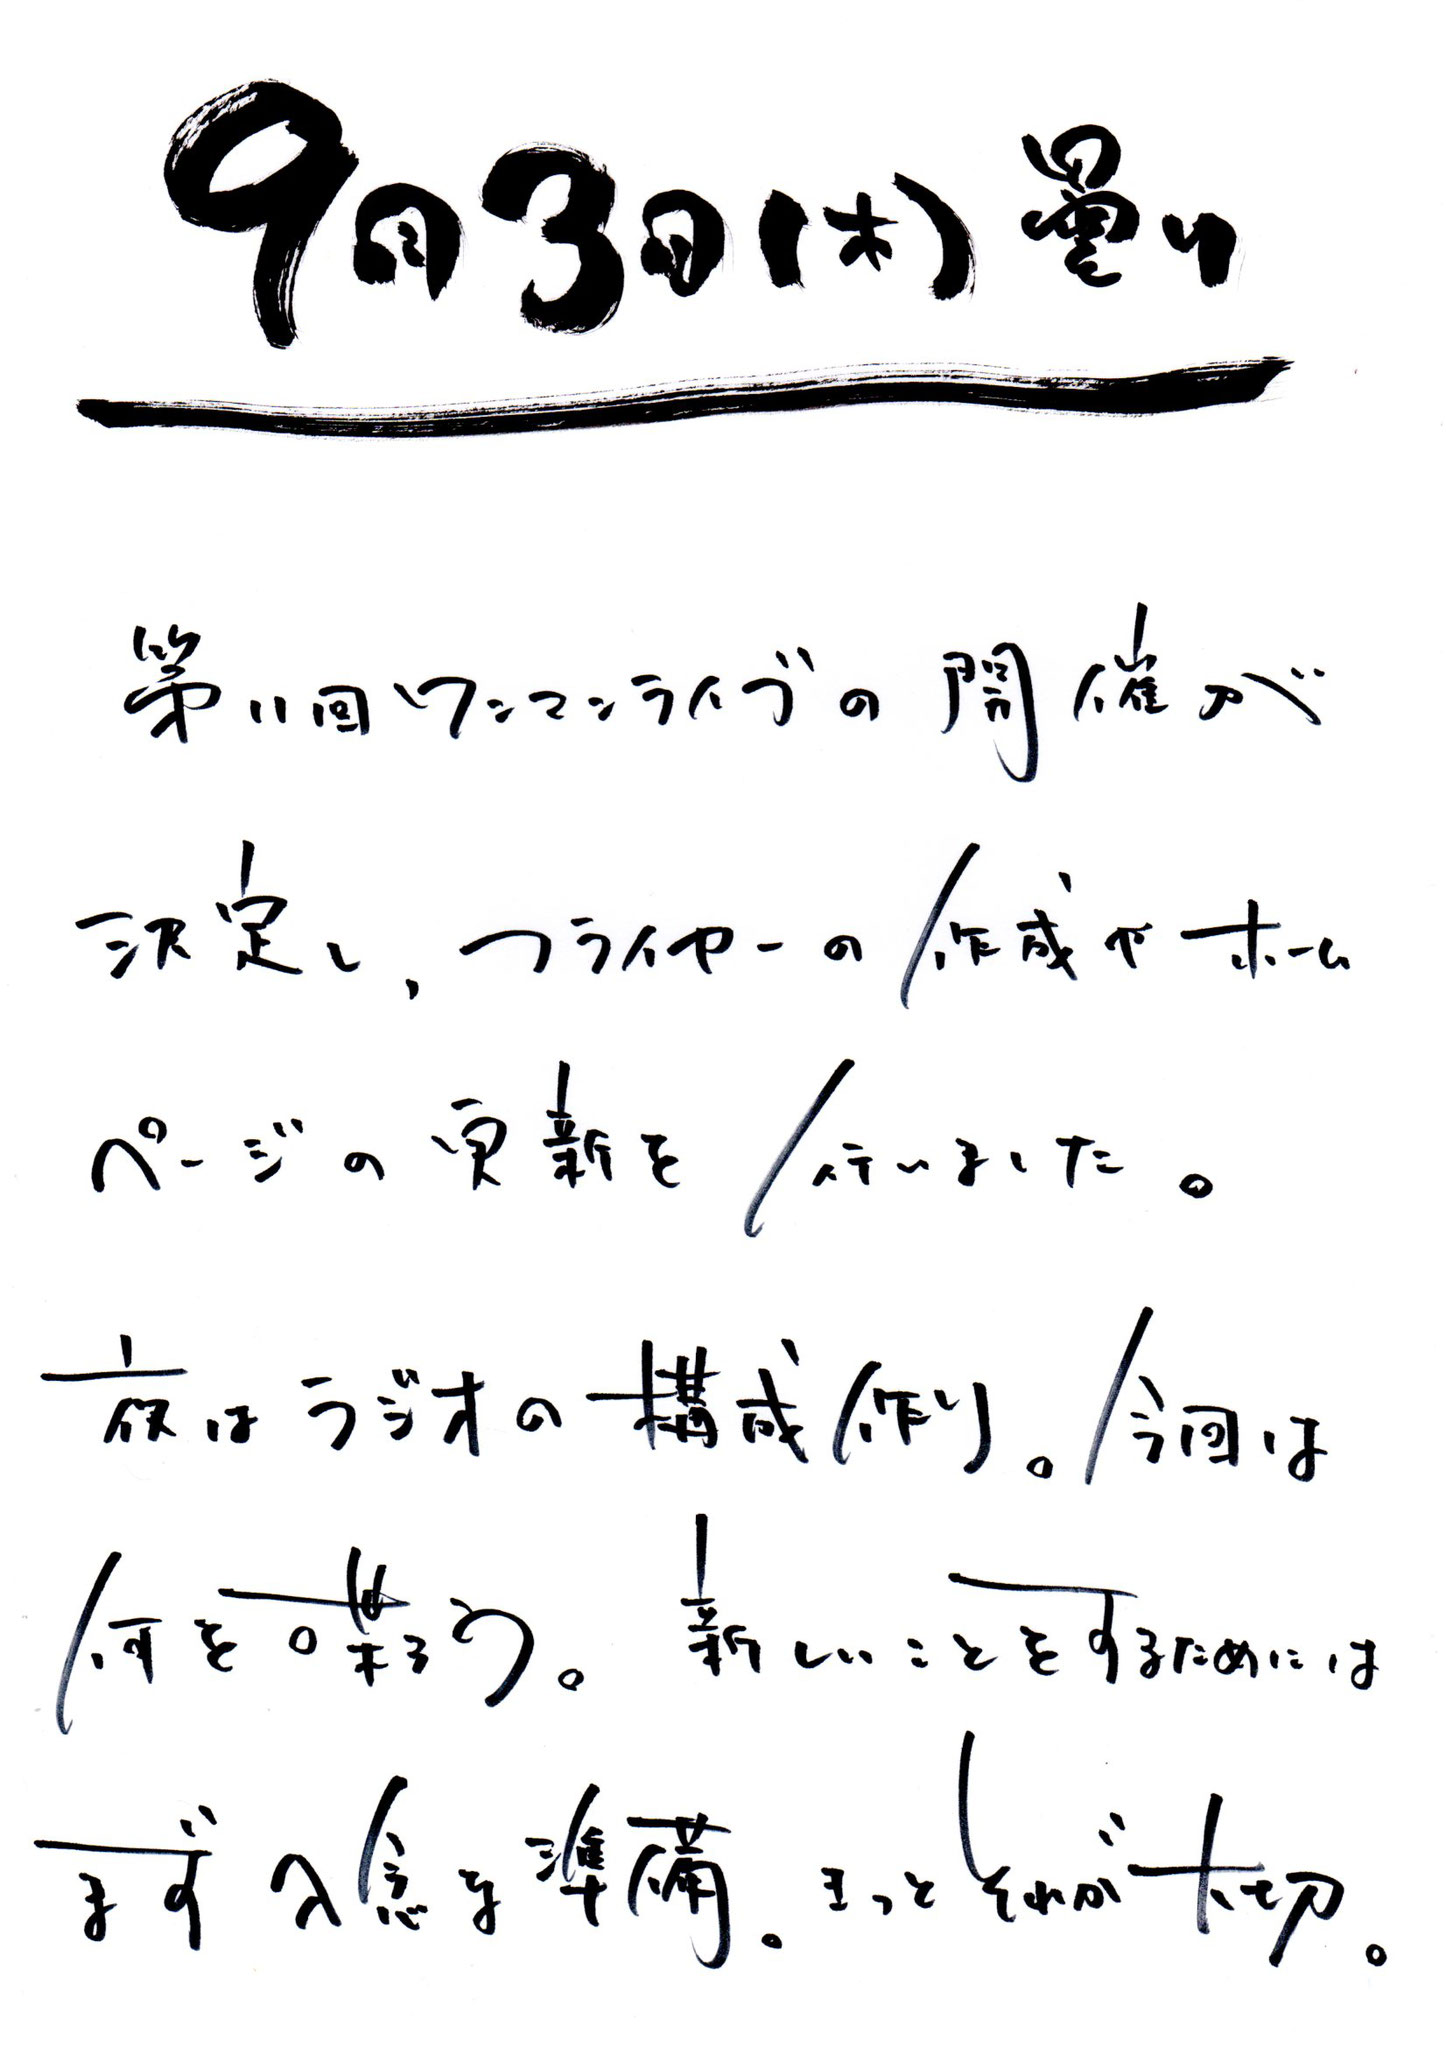 9月3日(木)曇り
第11回ワンマンライブの開催が
決定し、フライヤーの作成やホーム
ページの更新を行いました。
夜はラジオの構成作り。今回は
何を喋ろう。新しいことをするためには
まず入念な準備。きっとそれが大切。